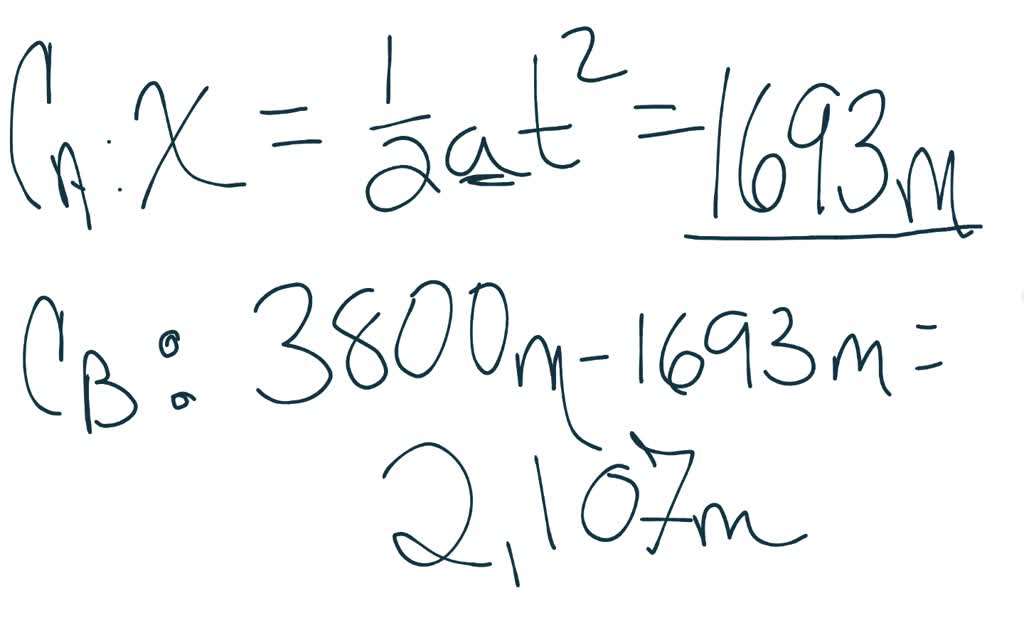 C_A: x = 1/2 at² = 1693m
C_B: 3800m - 1693m =
2,107m